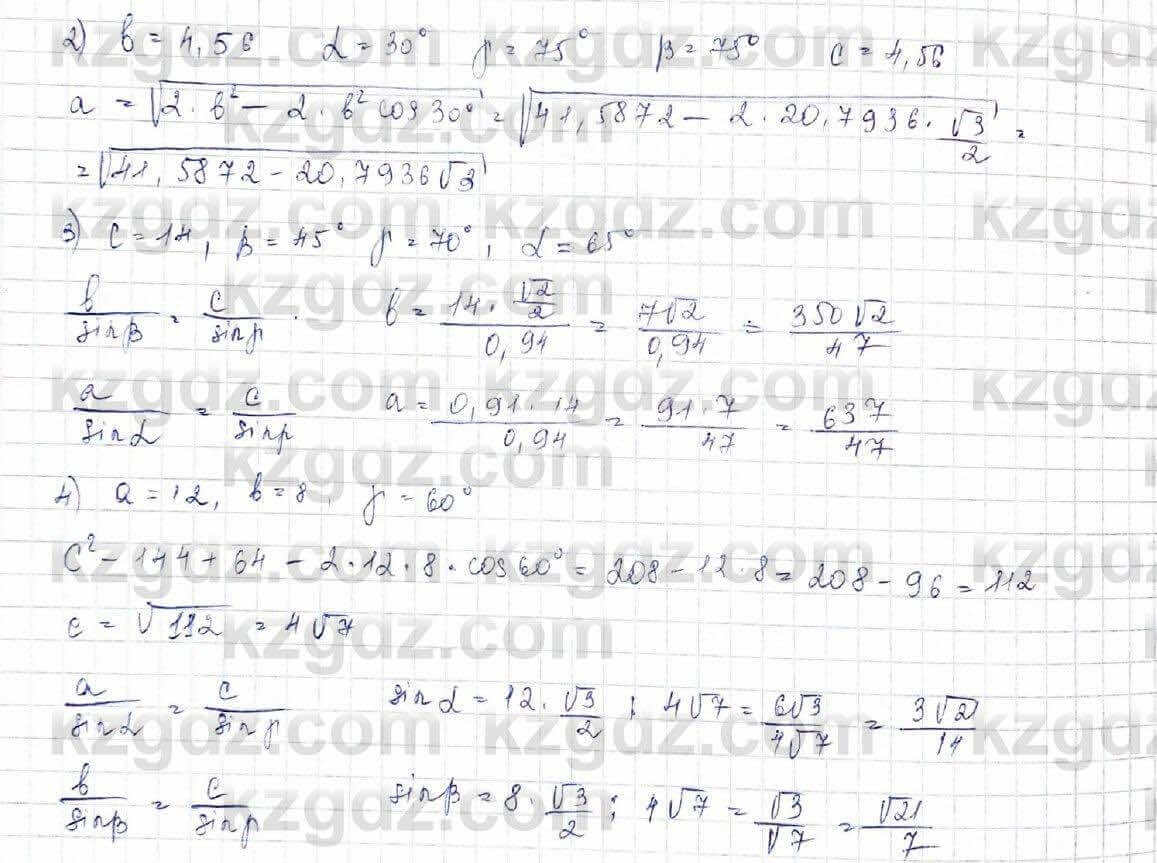 2) b = 4,56 α = 30° γ = 75° β = 75° c = 4,56
a = √(2·b² − 2·b² cos 30°) = √(41,5872 − 2·20,7936·√3/2) =
= √(41,5872 − 20,7936√3)
3) c = 14, β = 45° γ = 70°, α = 65°
b/sinβ = c/sinγ . b = (14·√2/2)/0,94 = 7√2/0,94 = 350√2/47
a/sinα = c/sinγ a = 0,91·14/0,94 = 91·7/47 = 637/47
4) a = 12, b = 8, γ = 60°
c² − 144 + 64 − 2·12·8·cos60° = 208 − 12·8 = 208 − 96 = 112
c = √112 = 4√7
a/sinα = c/sinγ sinα = 12·√3/2 : 4√7 = 6√3/4√7 = 3√21/14
b/sinβ = c/sinγ sinβ = 8·√3/2 : 4√7 = √3/√7 = √21/7
kzgdz.com